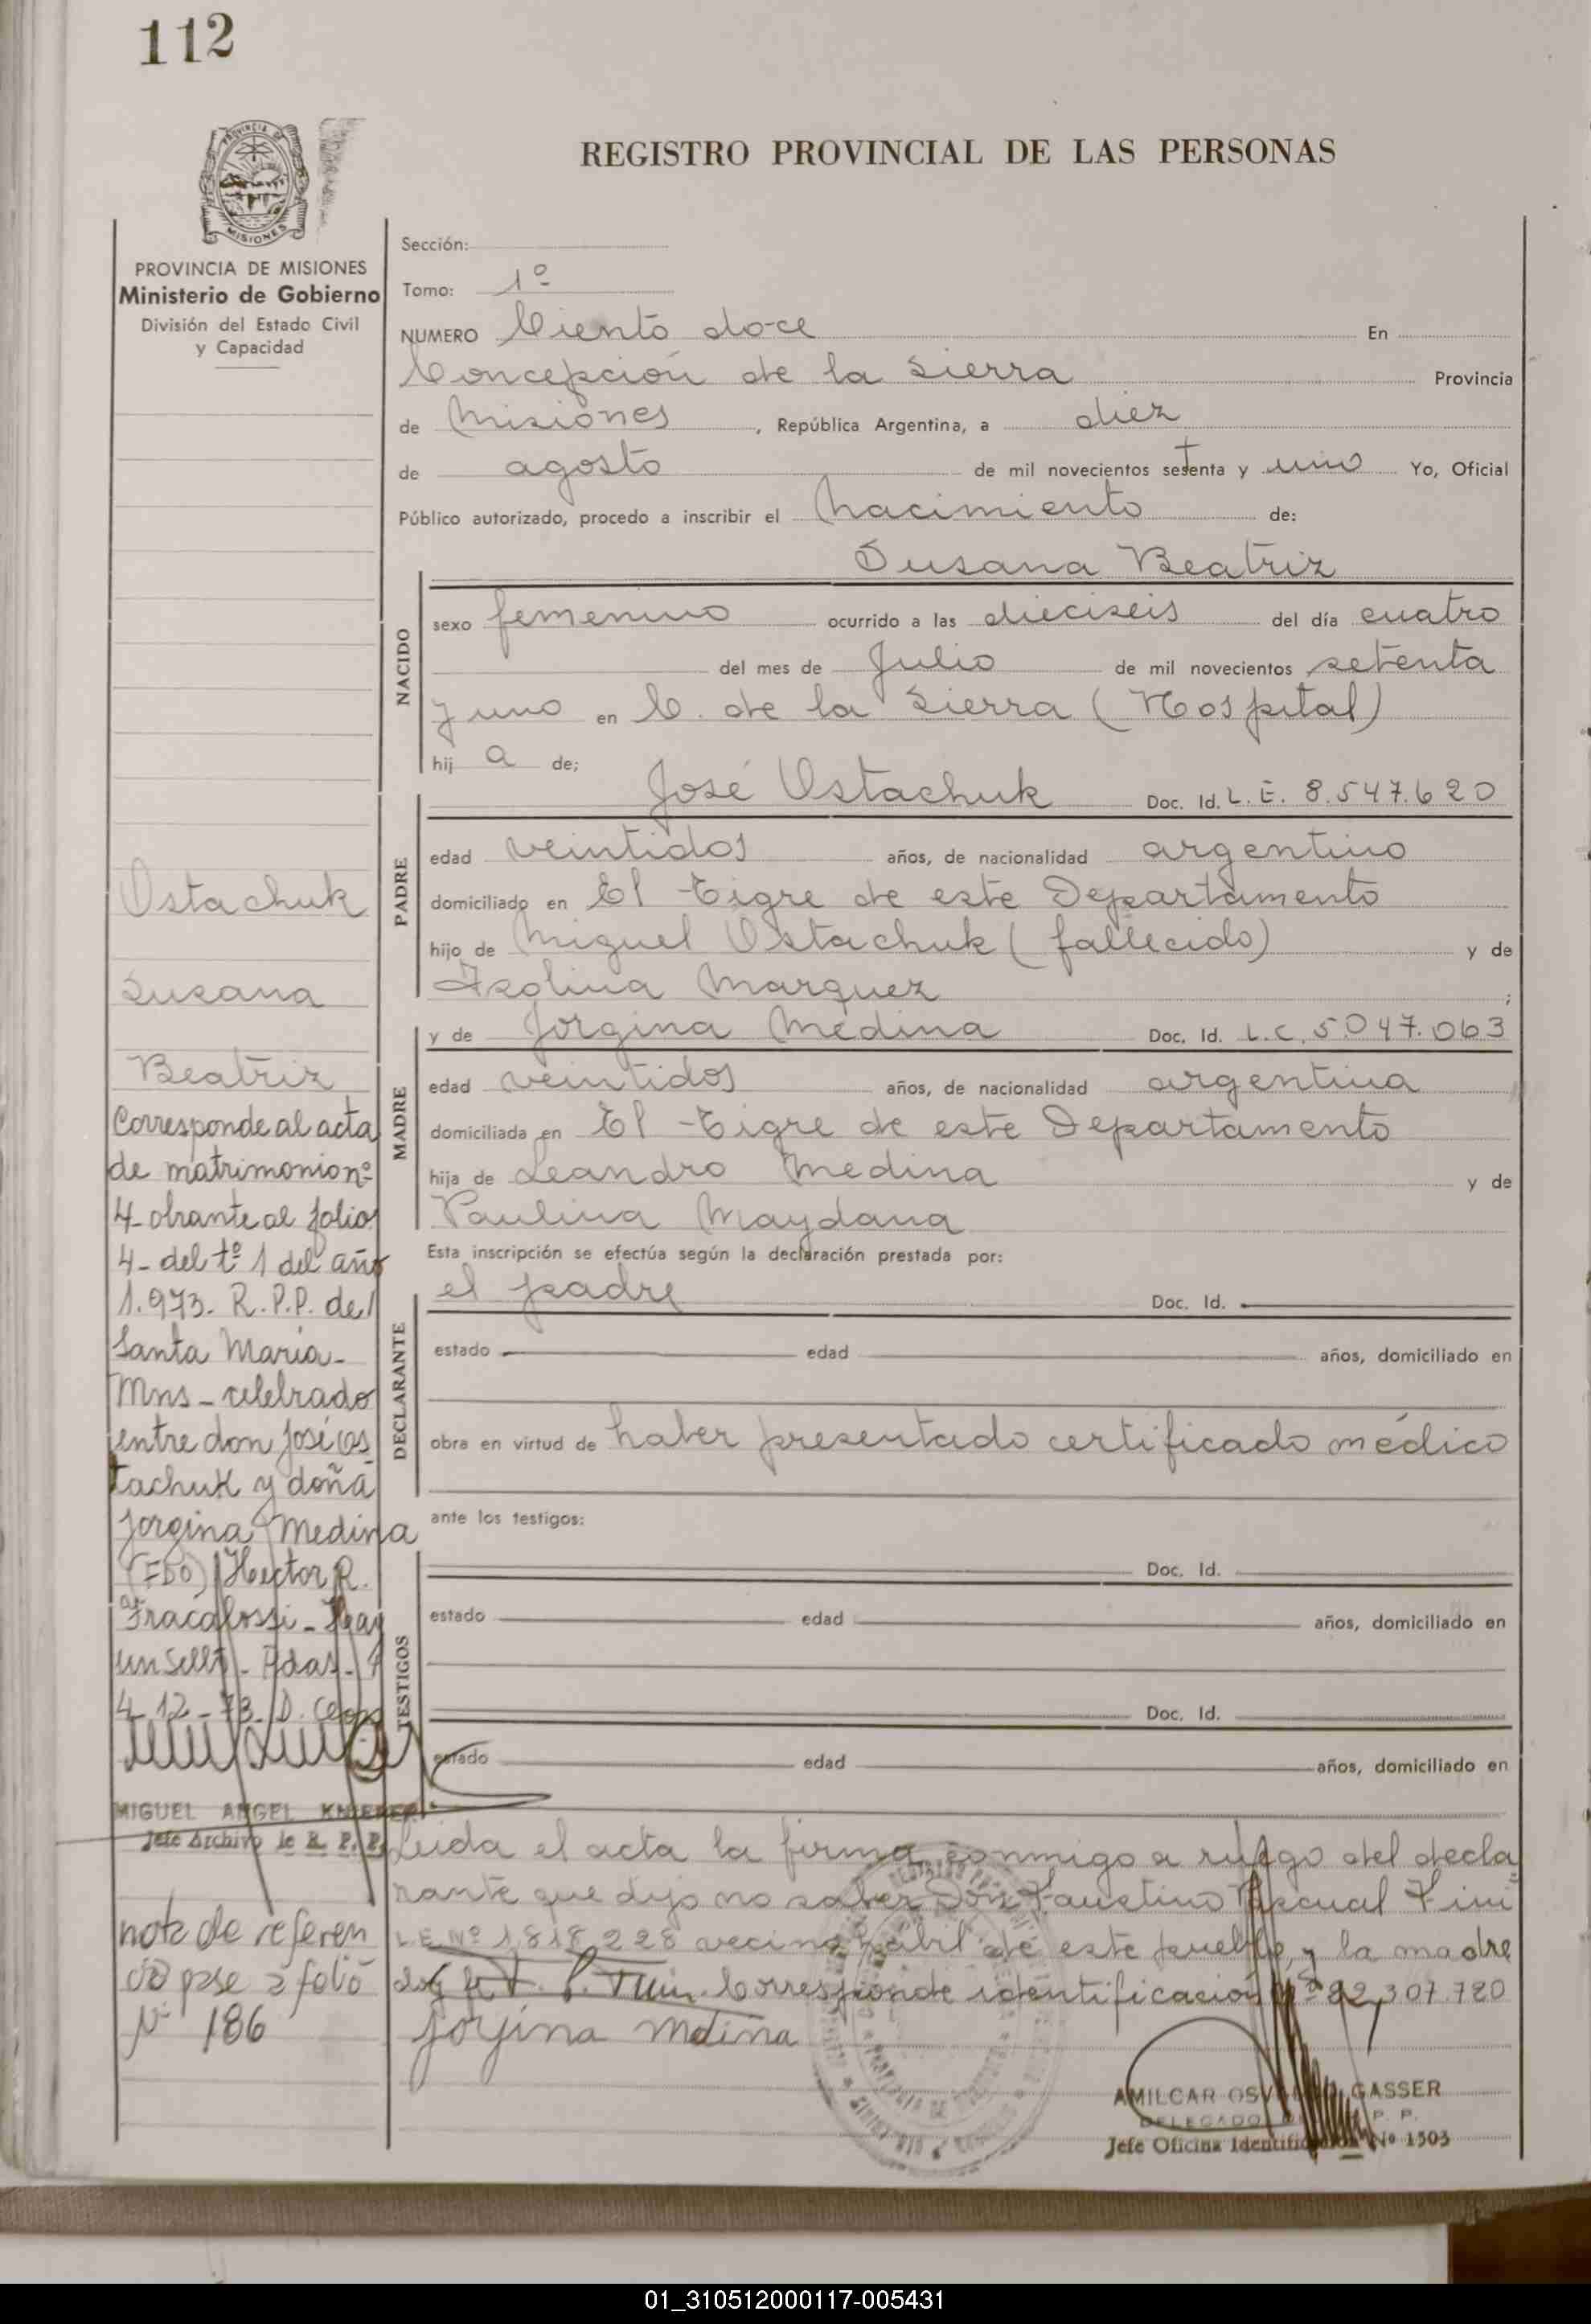 112
REGISTRO PROVINCIAL DE LAS PERSONAS
PROVINCIA DE MISIONES
Ministerio de Gobierno
División del Estado Civil
y Capacidad
Sección:
Tomo: 1º
NUMERO Ciento doce En
Concepción de la Sierra Provincia
de Misiones, República Argentina, a diez
de agosto de mil novecientos setenta y uno Yo, Oficial
Público autorizado, procedo a inscribir el Nacimiento de:
Susana Beatriz
NACIDO
sexo femenino ocurrido a las dieciseis del día cuatro
del mes de Julio de mil novecientos setenta
y uno en C. de la Sierra (Hospital)
hij a de;
PADRE
José Ostachuk Doc. Id. L. E. 8.547.620
edad veintidos años, de nacionalidad argentino
domiciliado en El Tigre de este Departamento
hijo de Miguel Ostachuk (fallecido) y de
Isolina Marquez ;
MADRE
y de Jorgina Medina Doc. Id. L.C. 5.047.063
edad veintidos años, de nacionalidad argentina
domiciliada en El Tigre de este Departamento
hija de Leandro Medina y de
Paulina Maydana
Esta inscripción se efectúa según la declaración prestada por:
DECLARANTE
el padre Doc. Id.
estado edad años, domiciliado en
obra en virtud de haber presentado certificado médico
ante los testigos:
TESTIGOS
Doc. Id.
estado edad años, domiciliado en
Doc. Id.
estado edad años, domiciliado en
Leida el acta la firma conmigo a ruego del decla
rante que dijo no saber Don Faustino Pascual Fini
L.E.Nº 1.818.228 vecino habil de este pueblo, y la madre
Corresponde identificación Nº 22.307.780
Jorjina Mdina
AMILCAR OSVALDO GASSER
DELEGADO P. P.
Jefe Oficina Identificación Nº 1503
Ostachuk
Susana
Beatriz
Corresponde al acta
de matrimonio nº
4- obrante al folio
4- del tº 1 del año
1.973. R.P.P. de
Santa María-
Mns- celebrado
entre don José Os
tachuk y doña
Jorgina Medina
(FDO) Hector R.
Fracalossi- Hay
un sello- Pdas-
4-12-73. D.
MIGUEL ANGEL
Jefe Archivo de R. P. P.
nota de referen
cia pase a folio
Nº 186
01_310512000117-005431